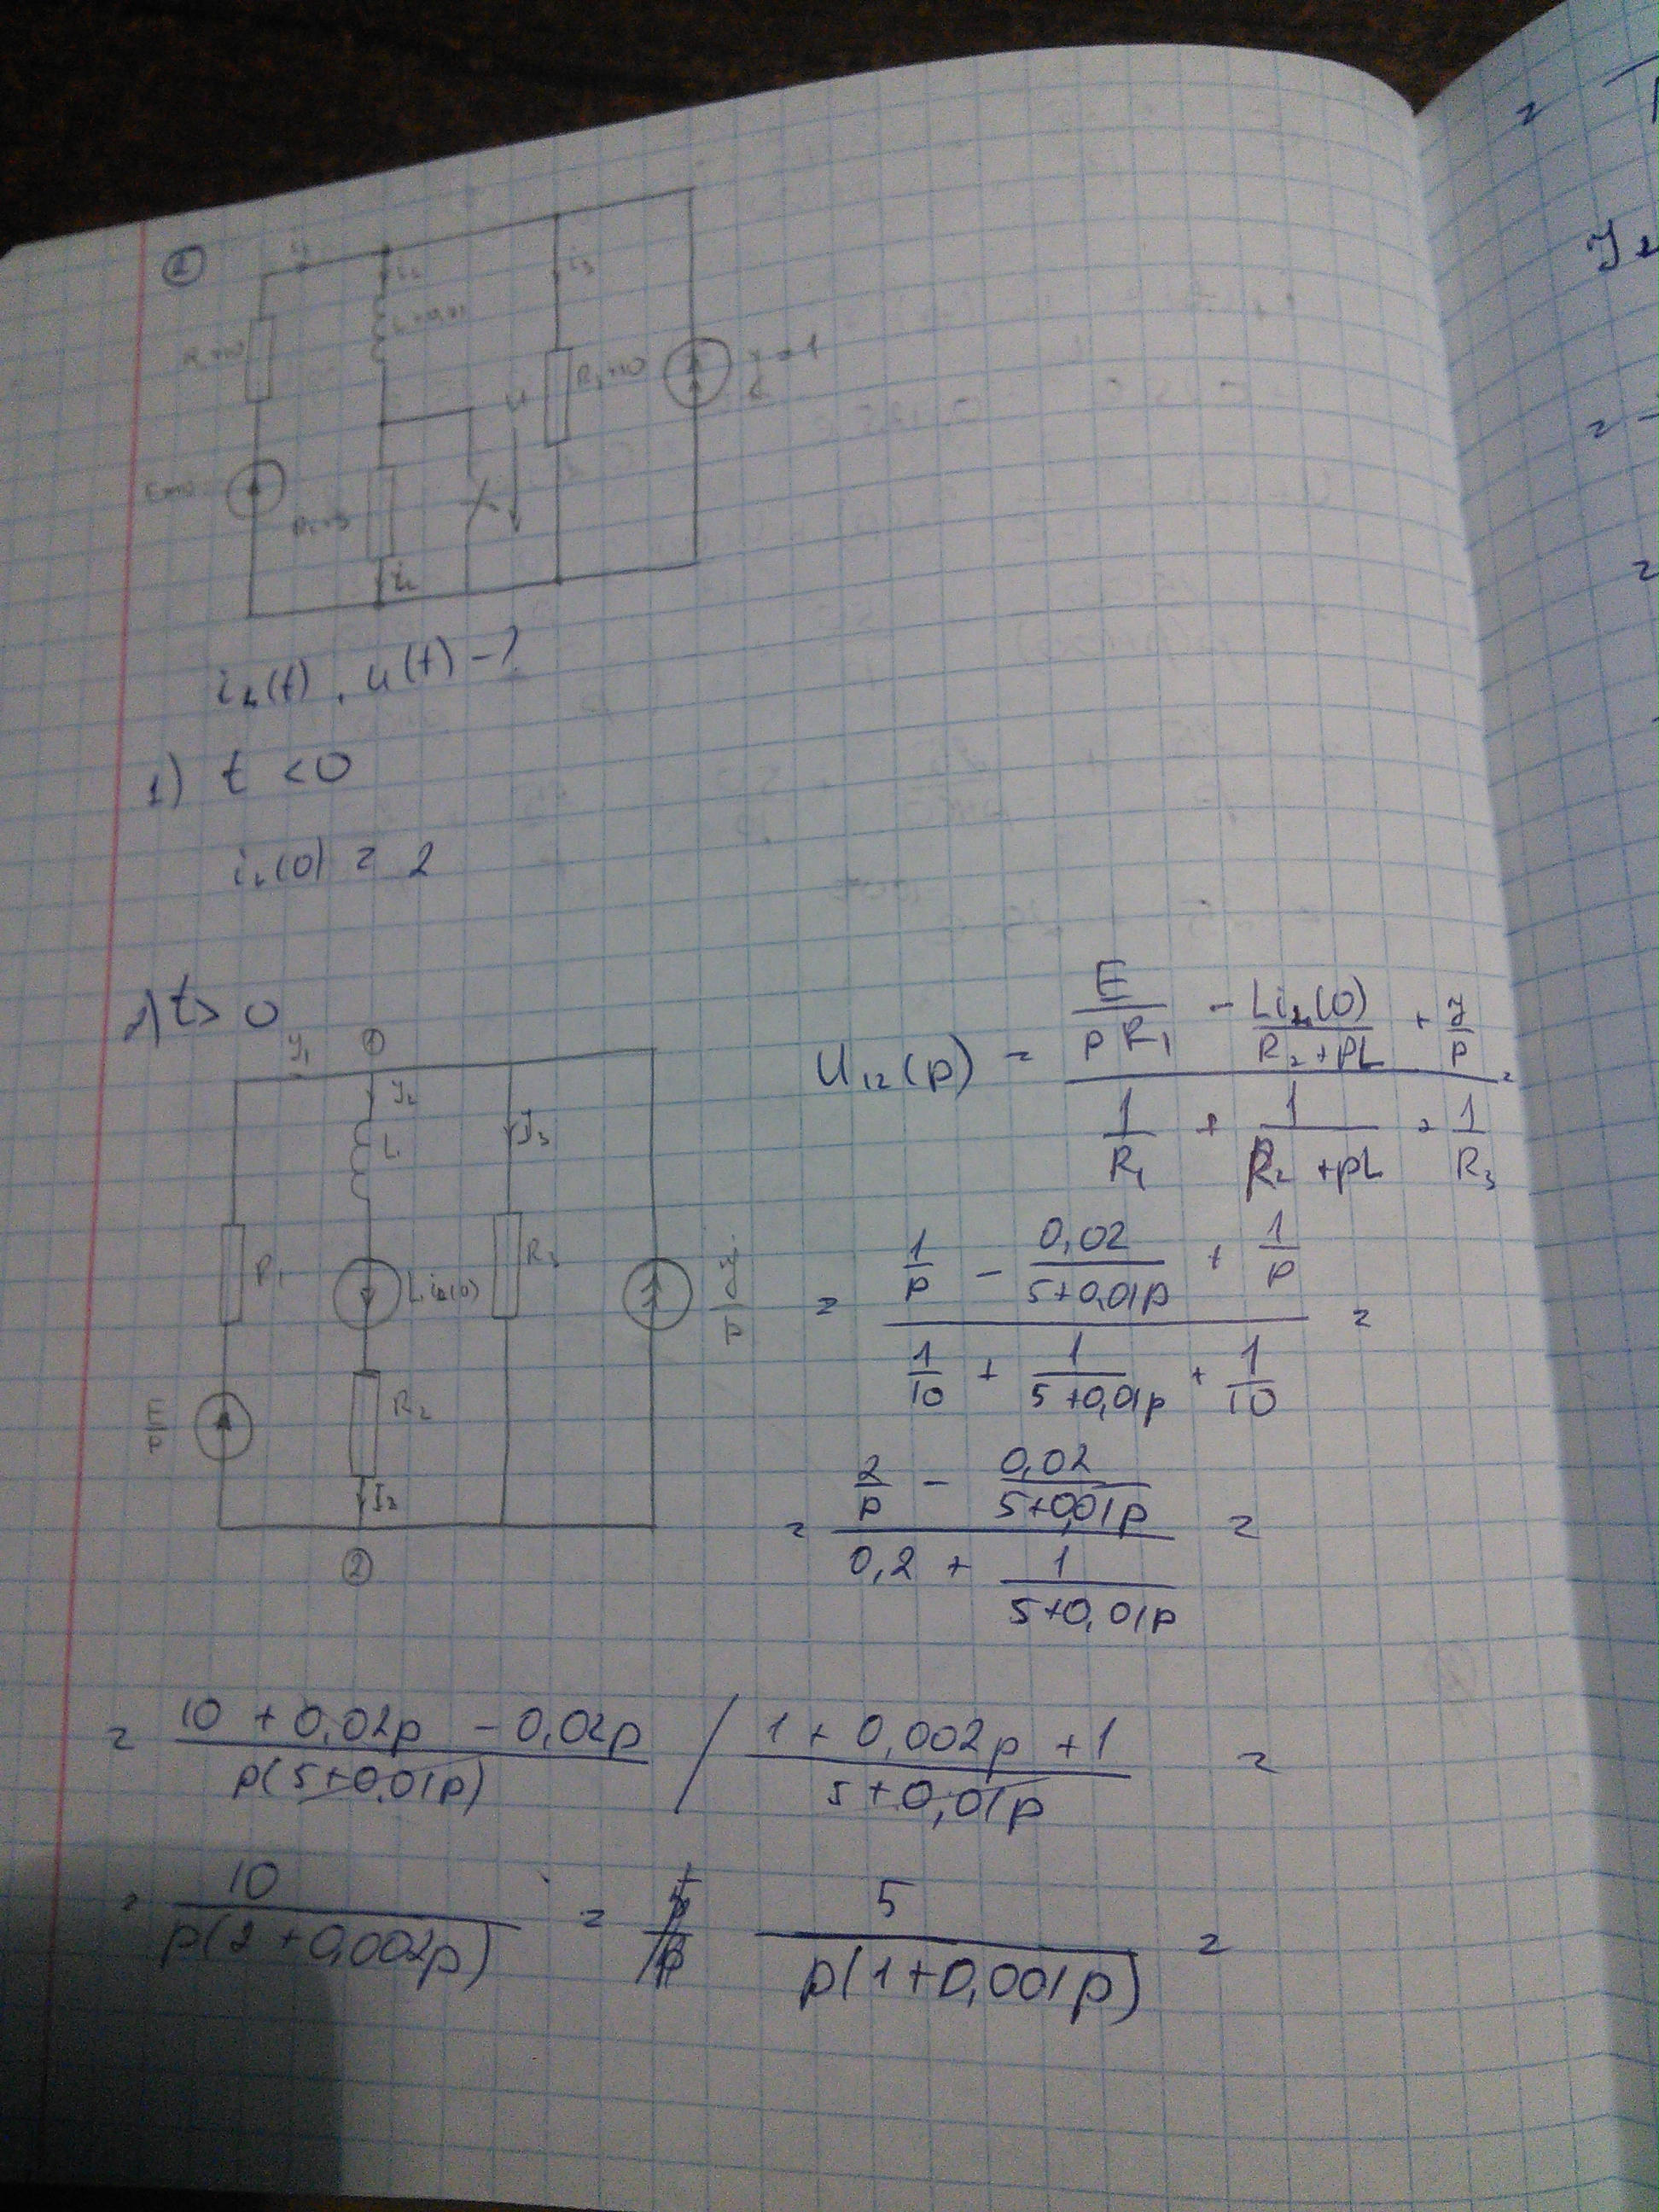 ①
i₂
i₃
L=0,01
R₃=10
u
i₂
i_L(t), u(t) - ?
1) t < 0
i_L(0) = 2
2) t > 0
I₁ ①
I₂
L
I₃
R₁
Li_L(0)
R₃
J/p
E/p
R₂
I₂
②
U₁₂(p) = (E/(pR₁) - Li_L(0)/(R₂+pL) + J/p) / (1/R₁ + 1/(R₂+pL) + 1/R₃) =
= (1/p - 0,02/(5+0,01p) + 1/p) / (1/10 + 1/(5+0,01p) + 1/10) =
= (2/p - 0,02/(5+0,01p)) / (0,2 + 1/(5+0,01p)) =
= (10 + 0,02p - 0,02p)/(p(5+0,01p)) / (1 + 0,002p + 1)/(5+0,01p) =
= 10/(p(2+0,002p)) = 5/(p(1+0,001p)) =